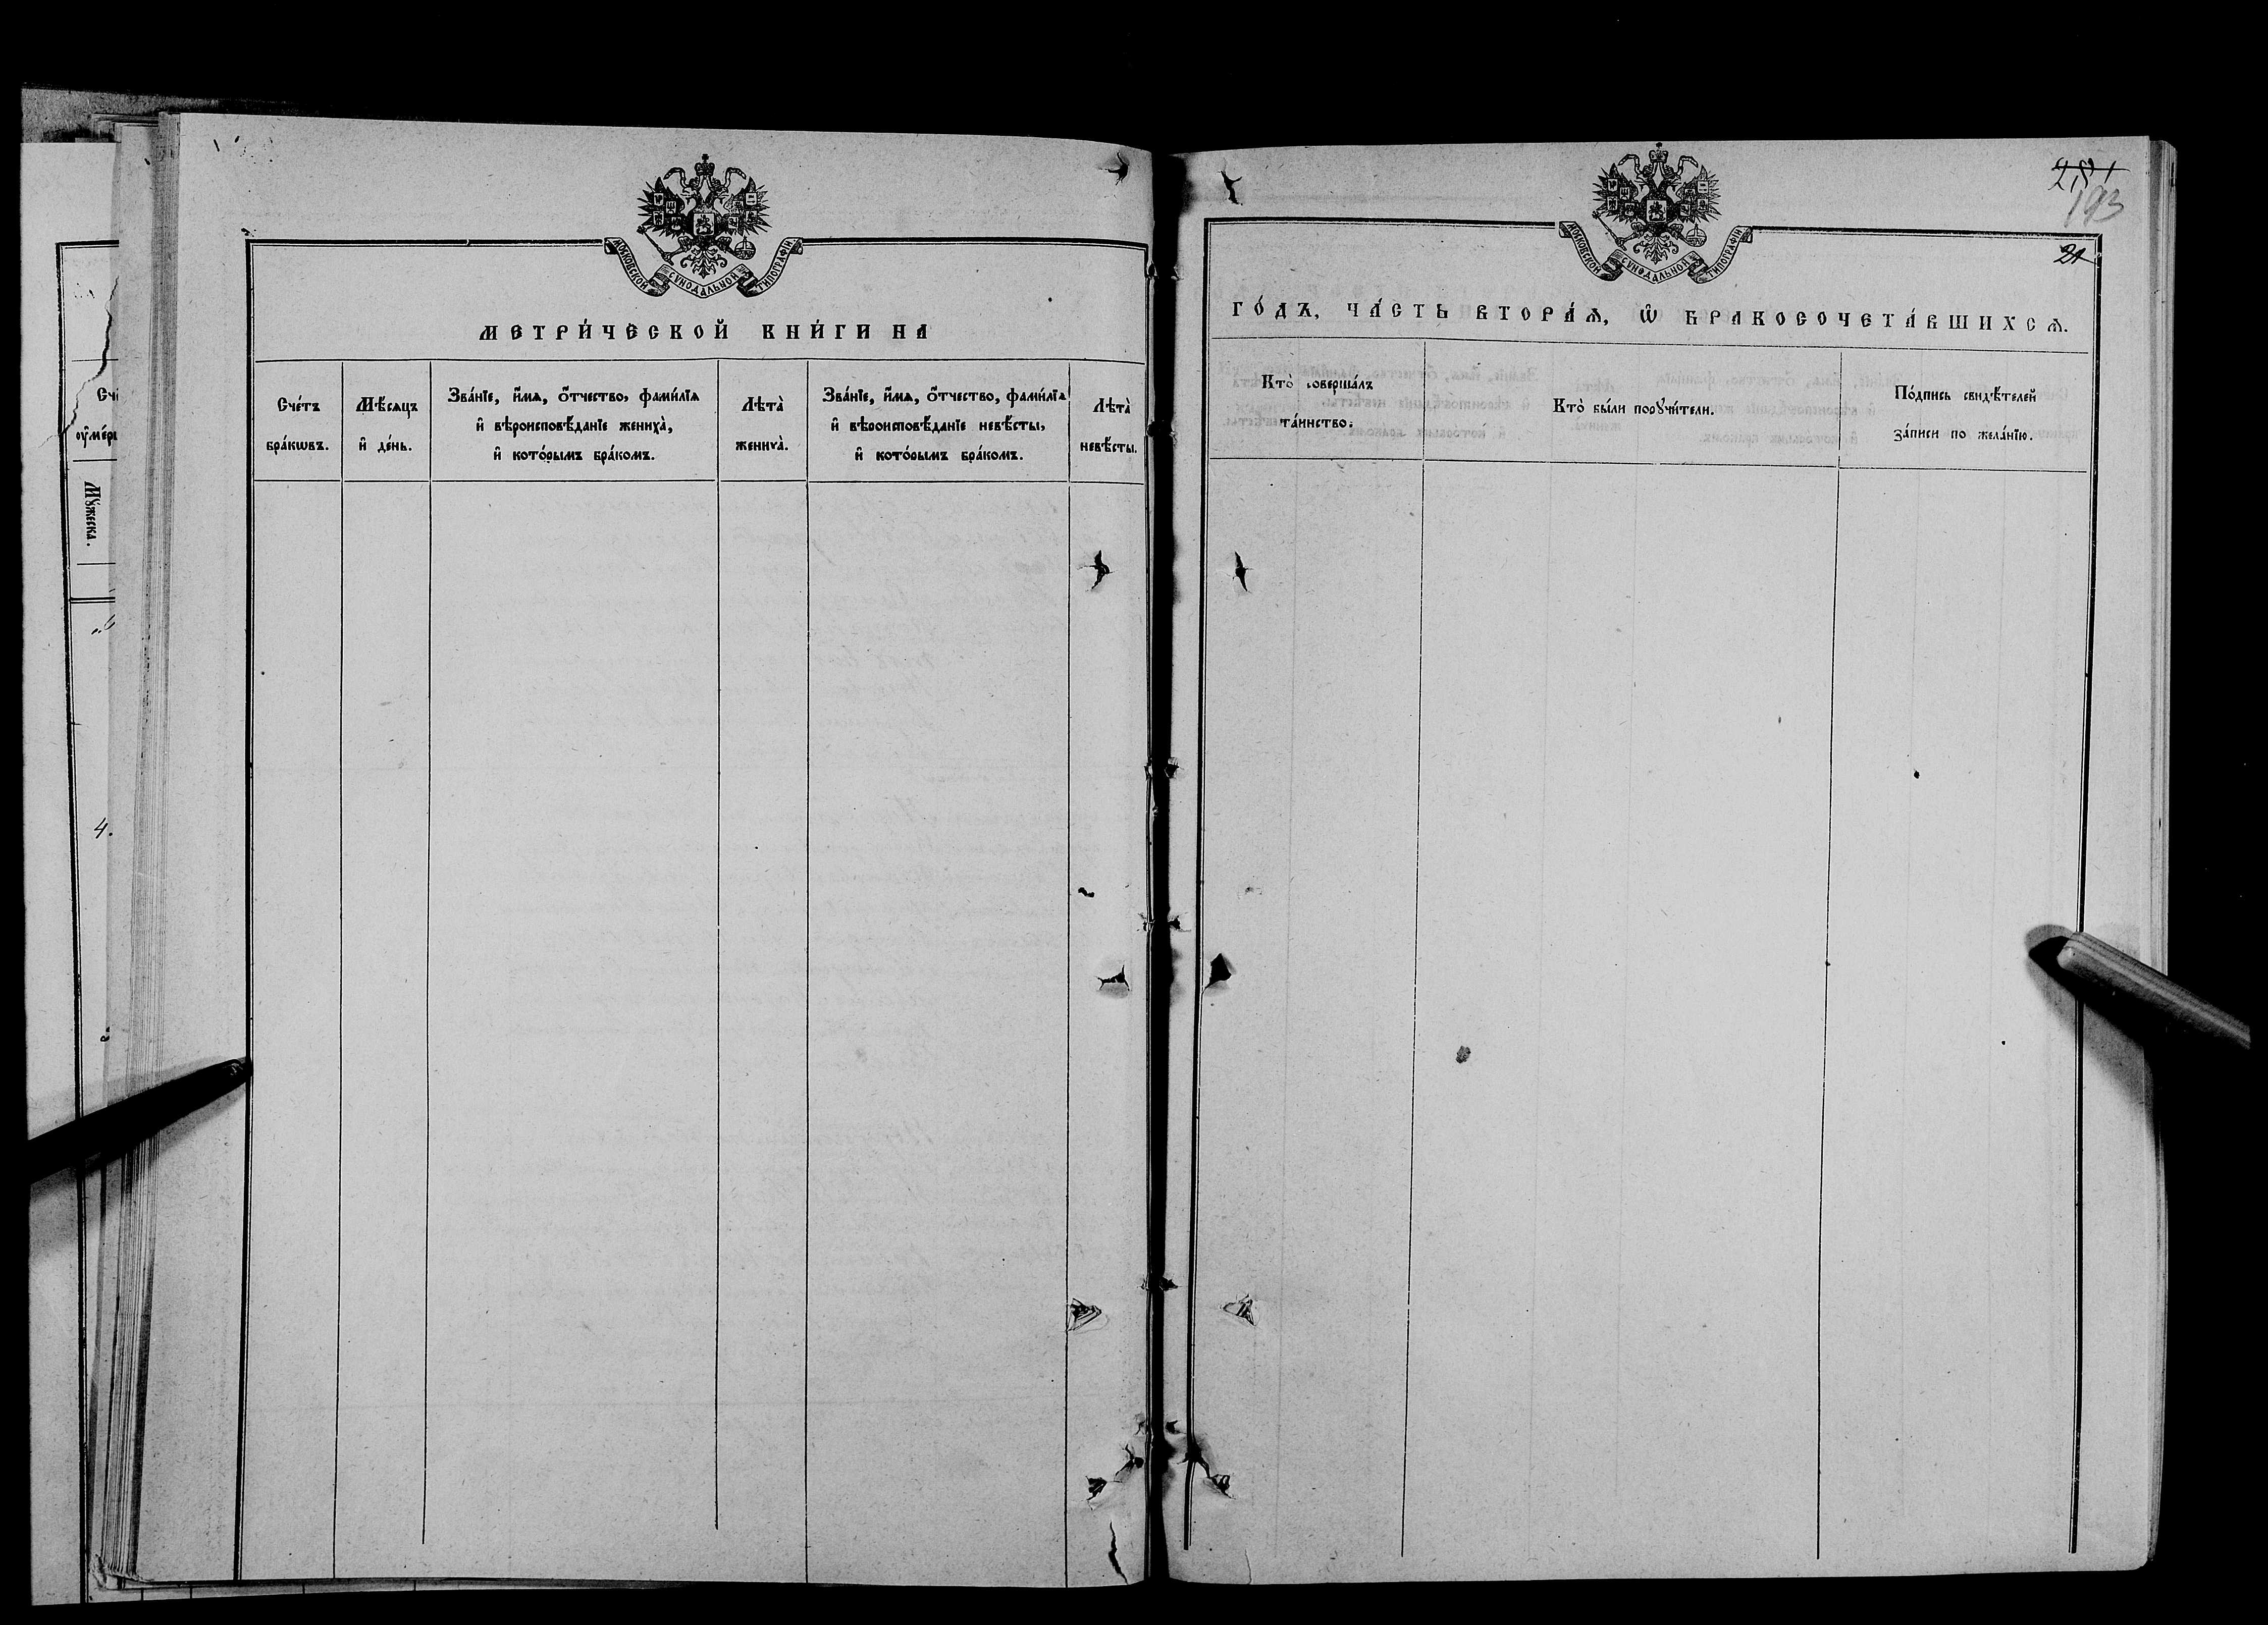 МОСКОВСКОЙ СѴНОДАЛЬНОЙ ТИПОГРАФІИ
МЕТРИ́ЧЕСКОЙ КНИ́ГИ НА
Сче́тъ
бра́кѡвъ.
Мѣ́сяцъ
и҆ де́нь.
Зва́нїе, и҆́мѧ, ѻ҆́тчество, фами́лїѧ
и҆ вѣроисповѣ́данїе жениха̀,
и҆ кото́рымъ бра́комъ.
Лѣта̀
жениха̀.
Зва́нїе, и҆́мѧ, ѻ҆́тчество, фами́лїѧ
и҆ вѣроисповѣ́данїе невѣ́сты,
и҆ кото́рымъ бра́комъ.
Лѣта̀
невѣ́сты.
Сче
ᲂу҆ме́р
Мꙋ́жеска.
4.
281
193
21
МОСКОВСКОЙ СѴНОДАЛЬНОЙ ТИПОГРАФІИ
ГО́ДЪ, ЧА́СТЬ ВТОРА́Ѧ, Ѡ҆ БРАКОСОЧЕТА́ВШИХСѦ.
Кто̀ соверша́лъ
та́инство.
Кто̀ бы́ли порꙋчи́тели.
По́дпись свидѣ́телей
за́писи по жела́нїю.